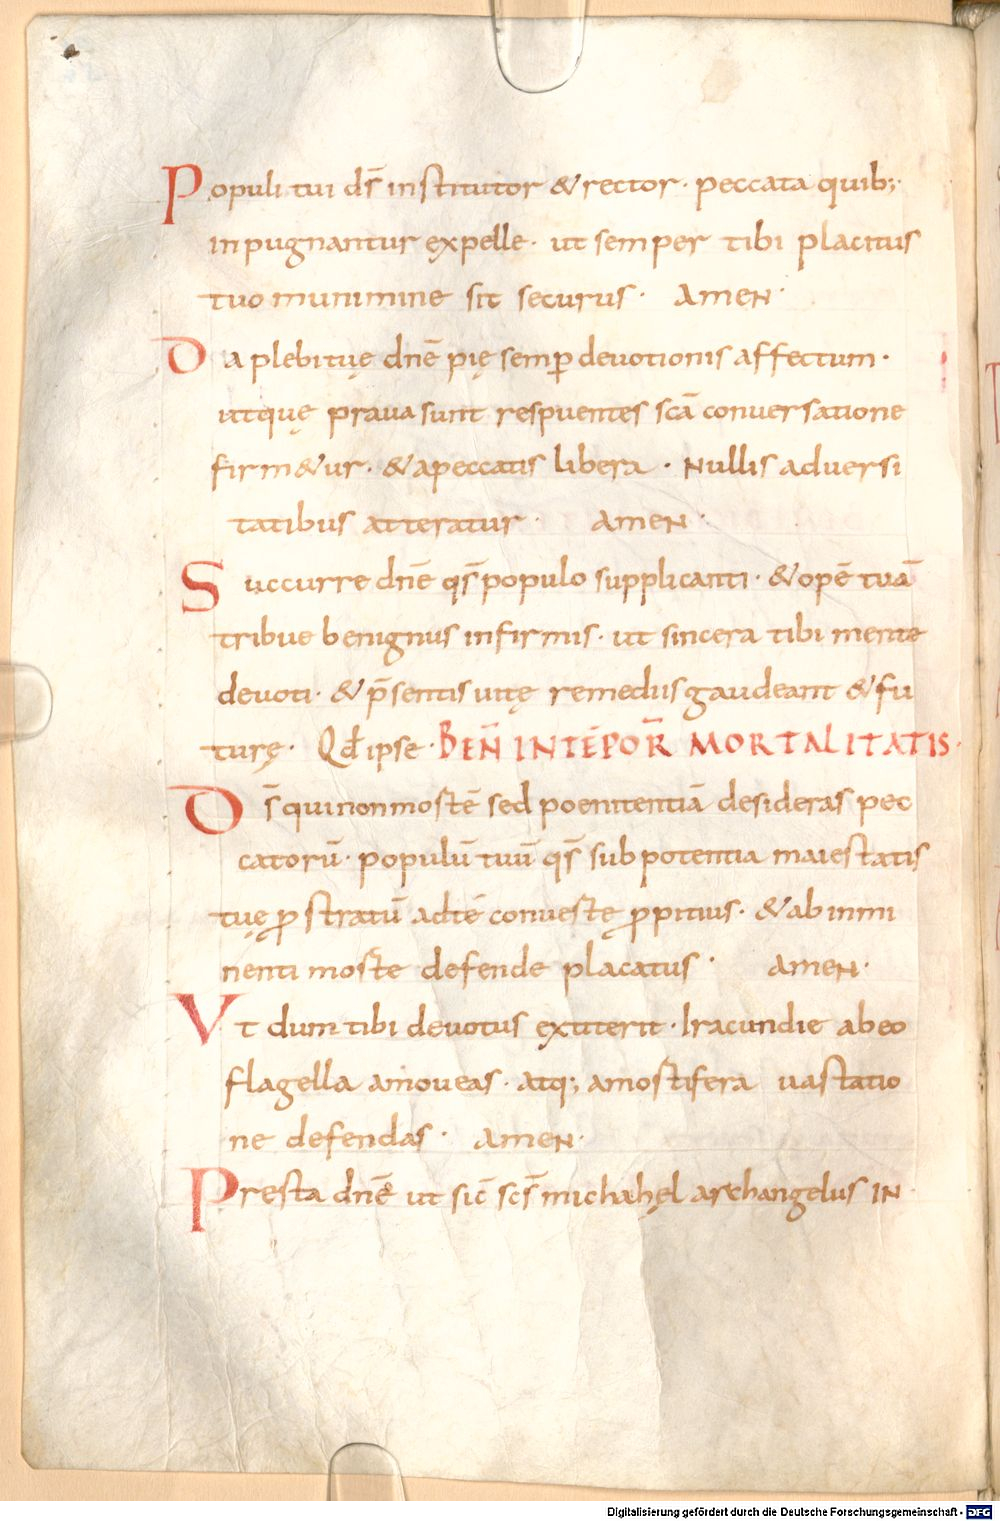 Populi tui ds̄ institutor & rector · peccata quib;·
inpugnantur expelle · ut semper tibi placitus
tuo munimine sit securus · Amen ·
Da plebi tuę dnē pię semꝑ devotionis affectum ·
utque prava sunt respuentes scā conversatione
firm&ur · & a peccatis libera · Nullis adversi
tatibus atteratur · Amen ·
Succurre dnē qs̄ populo supplicanti · & opē tuā
tribue benignus infirmis · ut sincera tibi mente
devoti · & p̄sentis vitę remediis gaudeant & fu
turę · Qđ ipse · BEN̄ IN TĒPOR̄ MORTALITATIS ·
Ds̄ qui non mortē sed poenitentiā desideras pec
catorū · populū tuū qs̄ sub potentia maiestatis
tuę ꝓstratū ad te convertę ꝓpitius · & ab inmi
nenti morte defende placatus · Amen ·
Vt dum tibi devotus extiterit · Iracundie ab eo
flagella amoveas · atq; a mortifera vastatio
ne defendas · Amen ·
Presta dnē ut sic̄ scs̄ michahęl archangelus IN
Digitalisierung gefördert durch die Deutsche Forschungsgemeinschaft - DFG